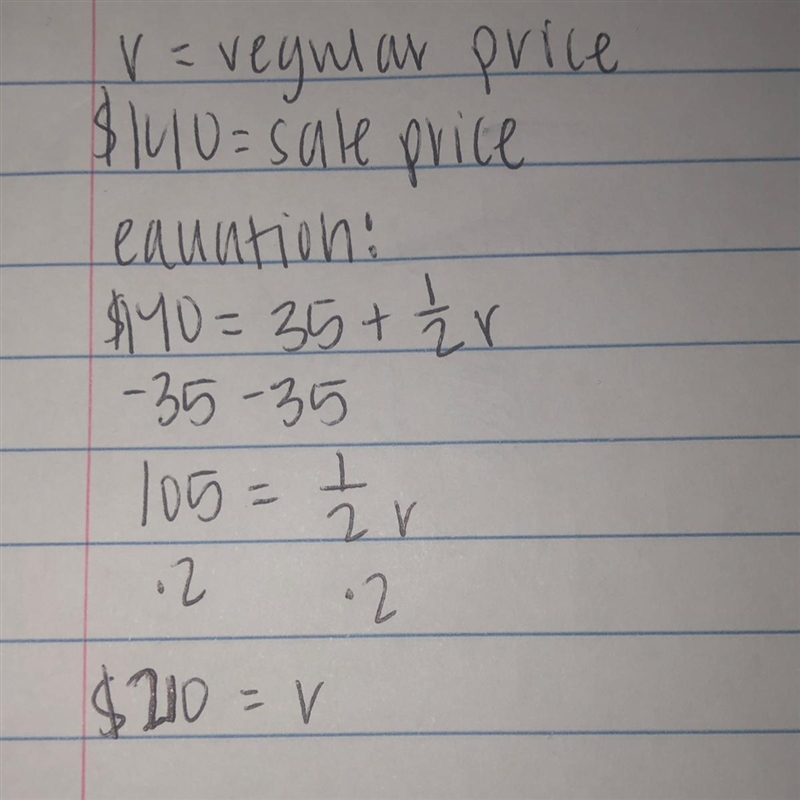 r = regular price
$140 = sale price
equation:
$140 = 35 + 1/2 r
-35 -35
105 = 1/2 r
·2 ·2
$210 = r